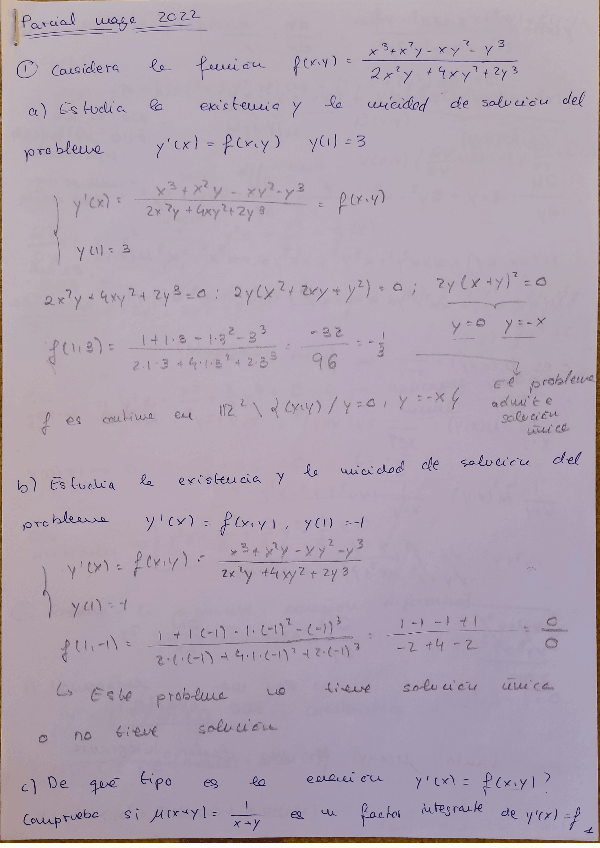 Parcial mayo 2022
① Considera la función f(x,y) = (x³+x²y-xy²-y³)/(2x²y+4xy²+2y³)
a) Estudia la existencia y la unicidad de solución del
problema y'(x) = f(x,y) y(1) = 3
{ y'(x) = (x³+x²y-xy²-y³)/(2x²y+4xy²+2y³) = f(x,y)
y(1) = 3
2x²y+4xy²+2y³=0 ; 2y(x²+2xy+y²)=0 ; 2y(x+y)²=0
y=0 y=-x
f(1,3) = (1+1·3-1·3²-3³)/(2·1·3+4·1·3²+2·3³) = -32/96 = -1/3
f es continua en ℝ² \ {(x,y) / y=0, y=-x}
El problema
admite
solución
única
b) Estudia la existencia y la unicidad de solución del
problema y'(x) = f(x,y), y(1) = -1
{ y'(x) = f(x,y) = (x³+x²y-xy²-y³)/(2x²y+4xy²+2y³)
y(1) = -1
f(1,-1) = (1+1(-1)-1·(-1)²-(-1)³)/(2·1·(-1)+4·1·(-1)²+2·(-1)³) = (1-1-1+1)/(-2+4-2) = 0/0
↳ Este problema no tiene solución única
o no tiene solución
c) De qué tipo es la ecuación y'(x) = f(x,y)?
Comprueba si μ(x+y) = 1/(x+y) es un factor integrante de y'(x)=f
1